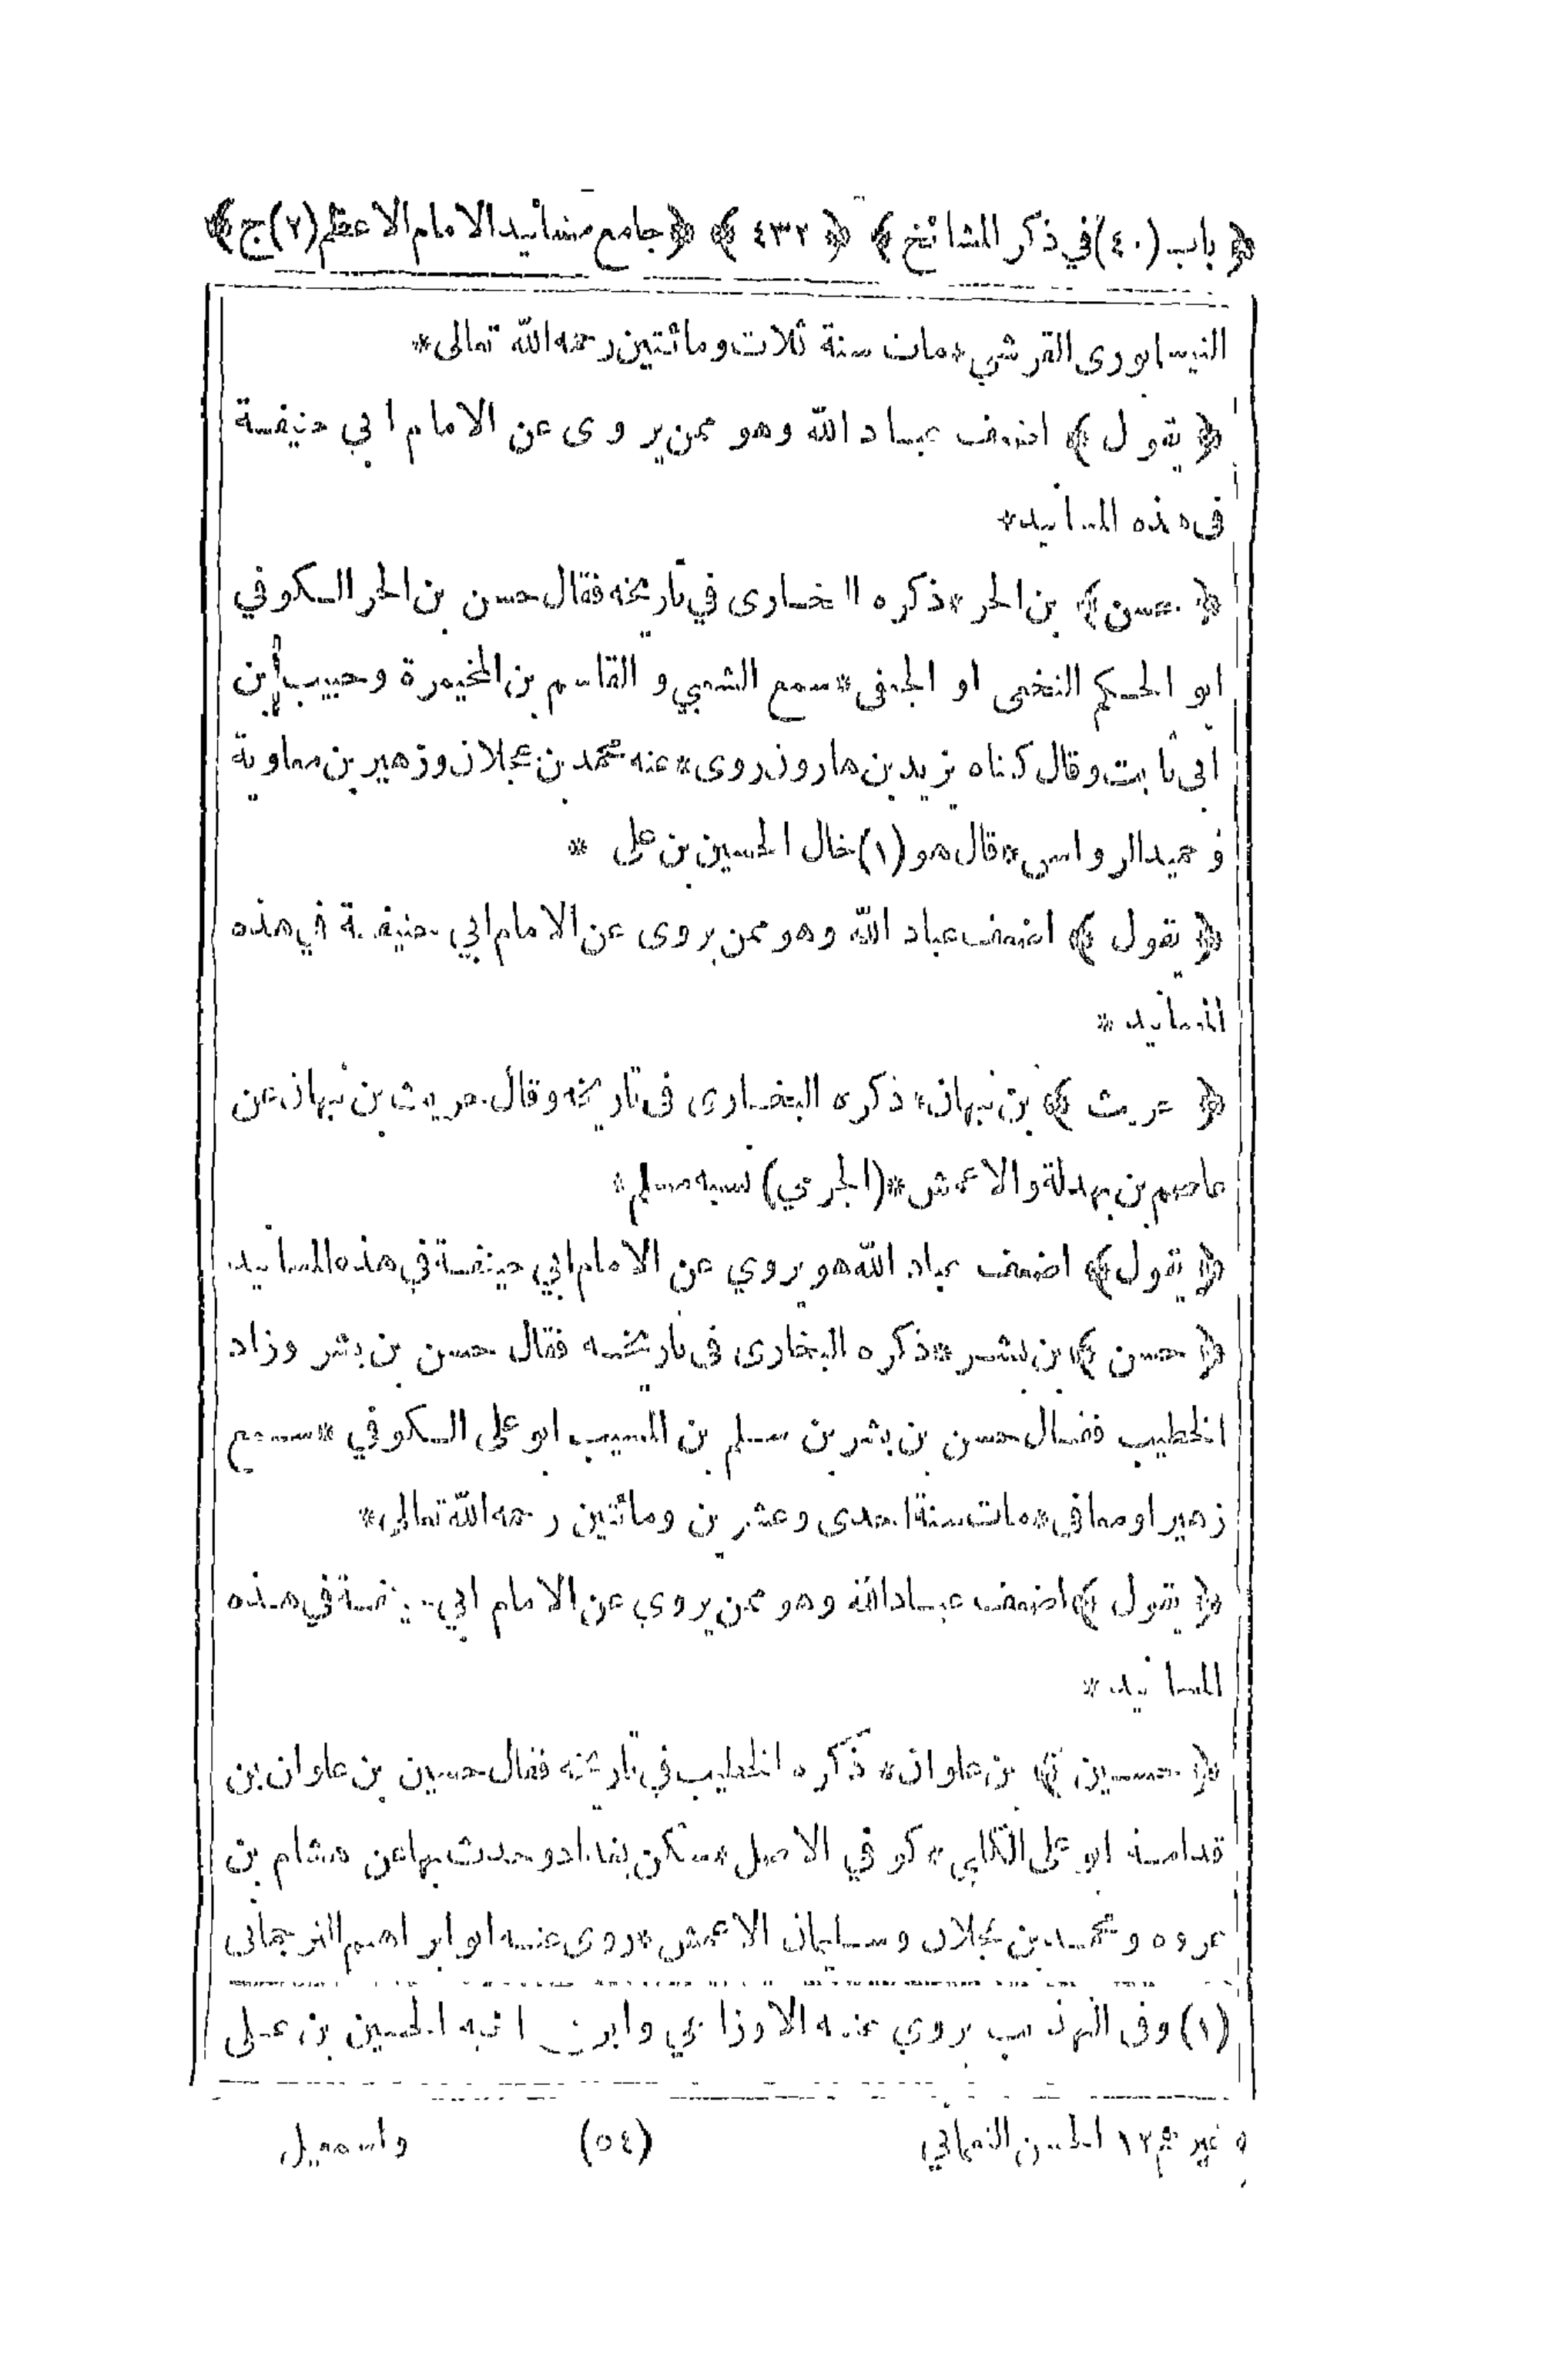 ﴿ باب (٤٠) في ذكر المشائخ ﴾ ﴿ ٤٣٢ ﴾ ﴿ جامع مسانيد الامام الاعظم (٢) ج ﴾
النيسابورى القرشي * مات سنة ثلاث ومائتين رحمه الله تعالى *
﴿ يقول ﴾ اضعف عباد الله وهو ممن يروى عن الامام ابي حنيفة
في هذه المسانيد *
﴿ حسن ﴾ بن الحر * ذكره البخارى في تاريخه فقال حسن بن الحر الكوفي
ابو الحكم النخعى او الجعفى * سمع الشعبي و القاسم بن المخيمرة وحبيب بن
ابى ثابت وقال كناه يزيد بن هارون روى * عنه محمد بن عجلان وزهير بن معاوية
و حميد الرواسى * قال هو (١) خال الحسين بن على *
﴿ يقول ﴾ اضعف عباد الله وهو ممن يروى عن الامام ابي حنيفة في هذه
المسانيد *
﴿ حريث ﴾ بن نبهان * ذكره البخارى فى تاريخه وقال حريث بن نبهان عن
عاصم بن بهدلة والاعمش * (الجرمي) نسبه مسلم *
﴿ يقول ﴾ اضعف عباد الله هو يروي عن الامام ابي حنيفة في هذه المسانيد
﴿ حسن ﴾ بن بشر * ذكره البخارى فى تاريخه فقال حسن بن بشر وزاد
الخطيب فقال حسن بن بشر بن سلم بن المسيب ابو على الكوفي * سمع
زهيرا ومعافى * مات سنة احدى وعشرين ومائتين رحمه الله تعالى *
﴿ يقول ﴾ اضعف عباد الله وهو ممن يروي عن الامام ابي حنيفة في هذه
المسانيد *
﴿ حسين ﴾ بن علوان * ذكره الخطيب في تاريخه فقال حسين بن علوان بن
قدامة ابو على الكلبى * كوفي الاصل * سكن بغداد وحدث بها عن هشام بن
عروه و محمد بن عجلان وسليمان الاعمش * روى عنه ابو ابراهيم الترجمانى
(١) وفى التهذيب يروي عنه الاوزاعي وابن اخيه الحسين بن على
و غيرهم ١٢ الحسن النعماني (٥٤) واسمعيل